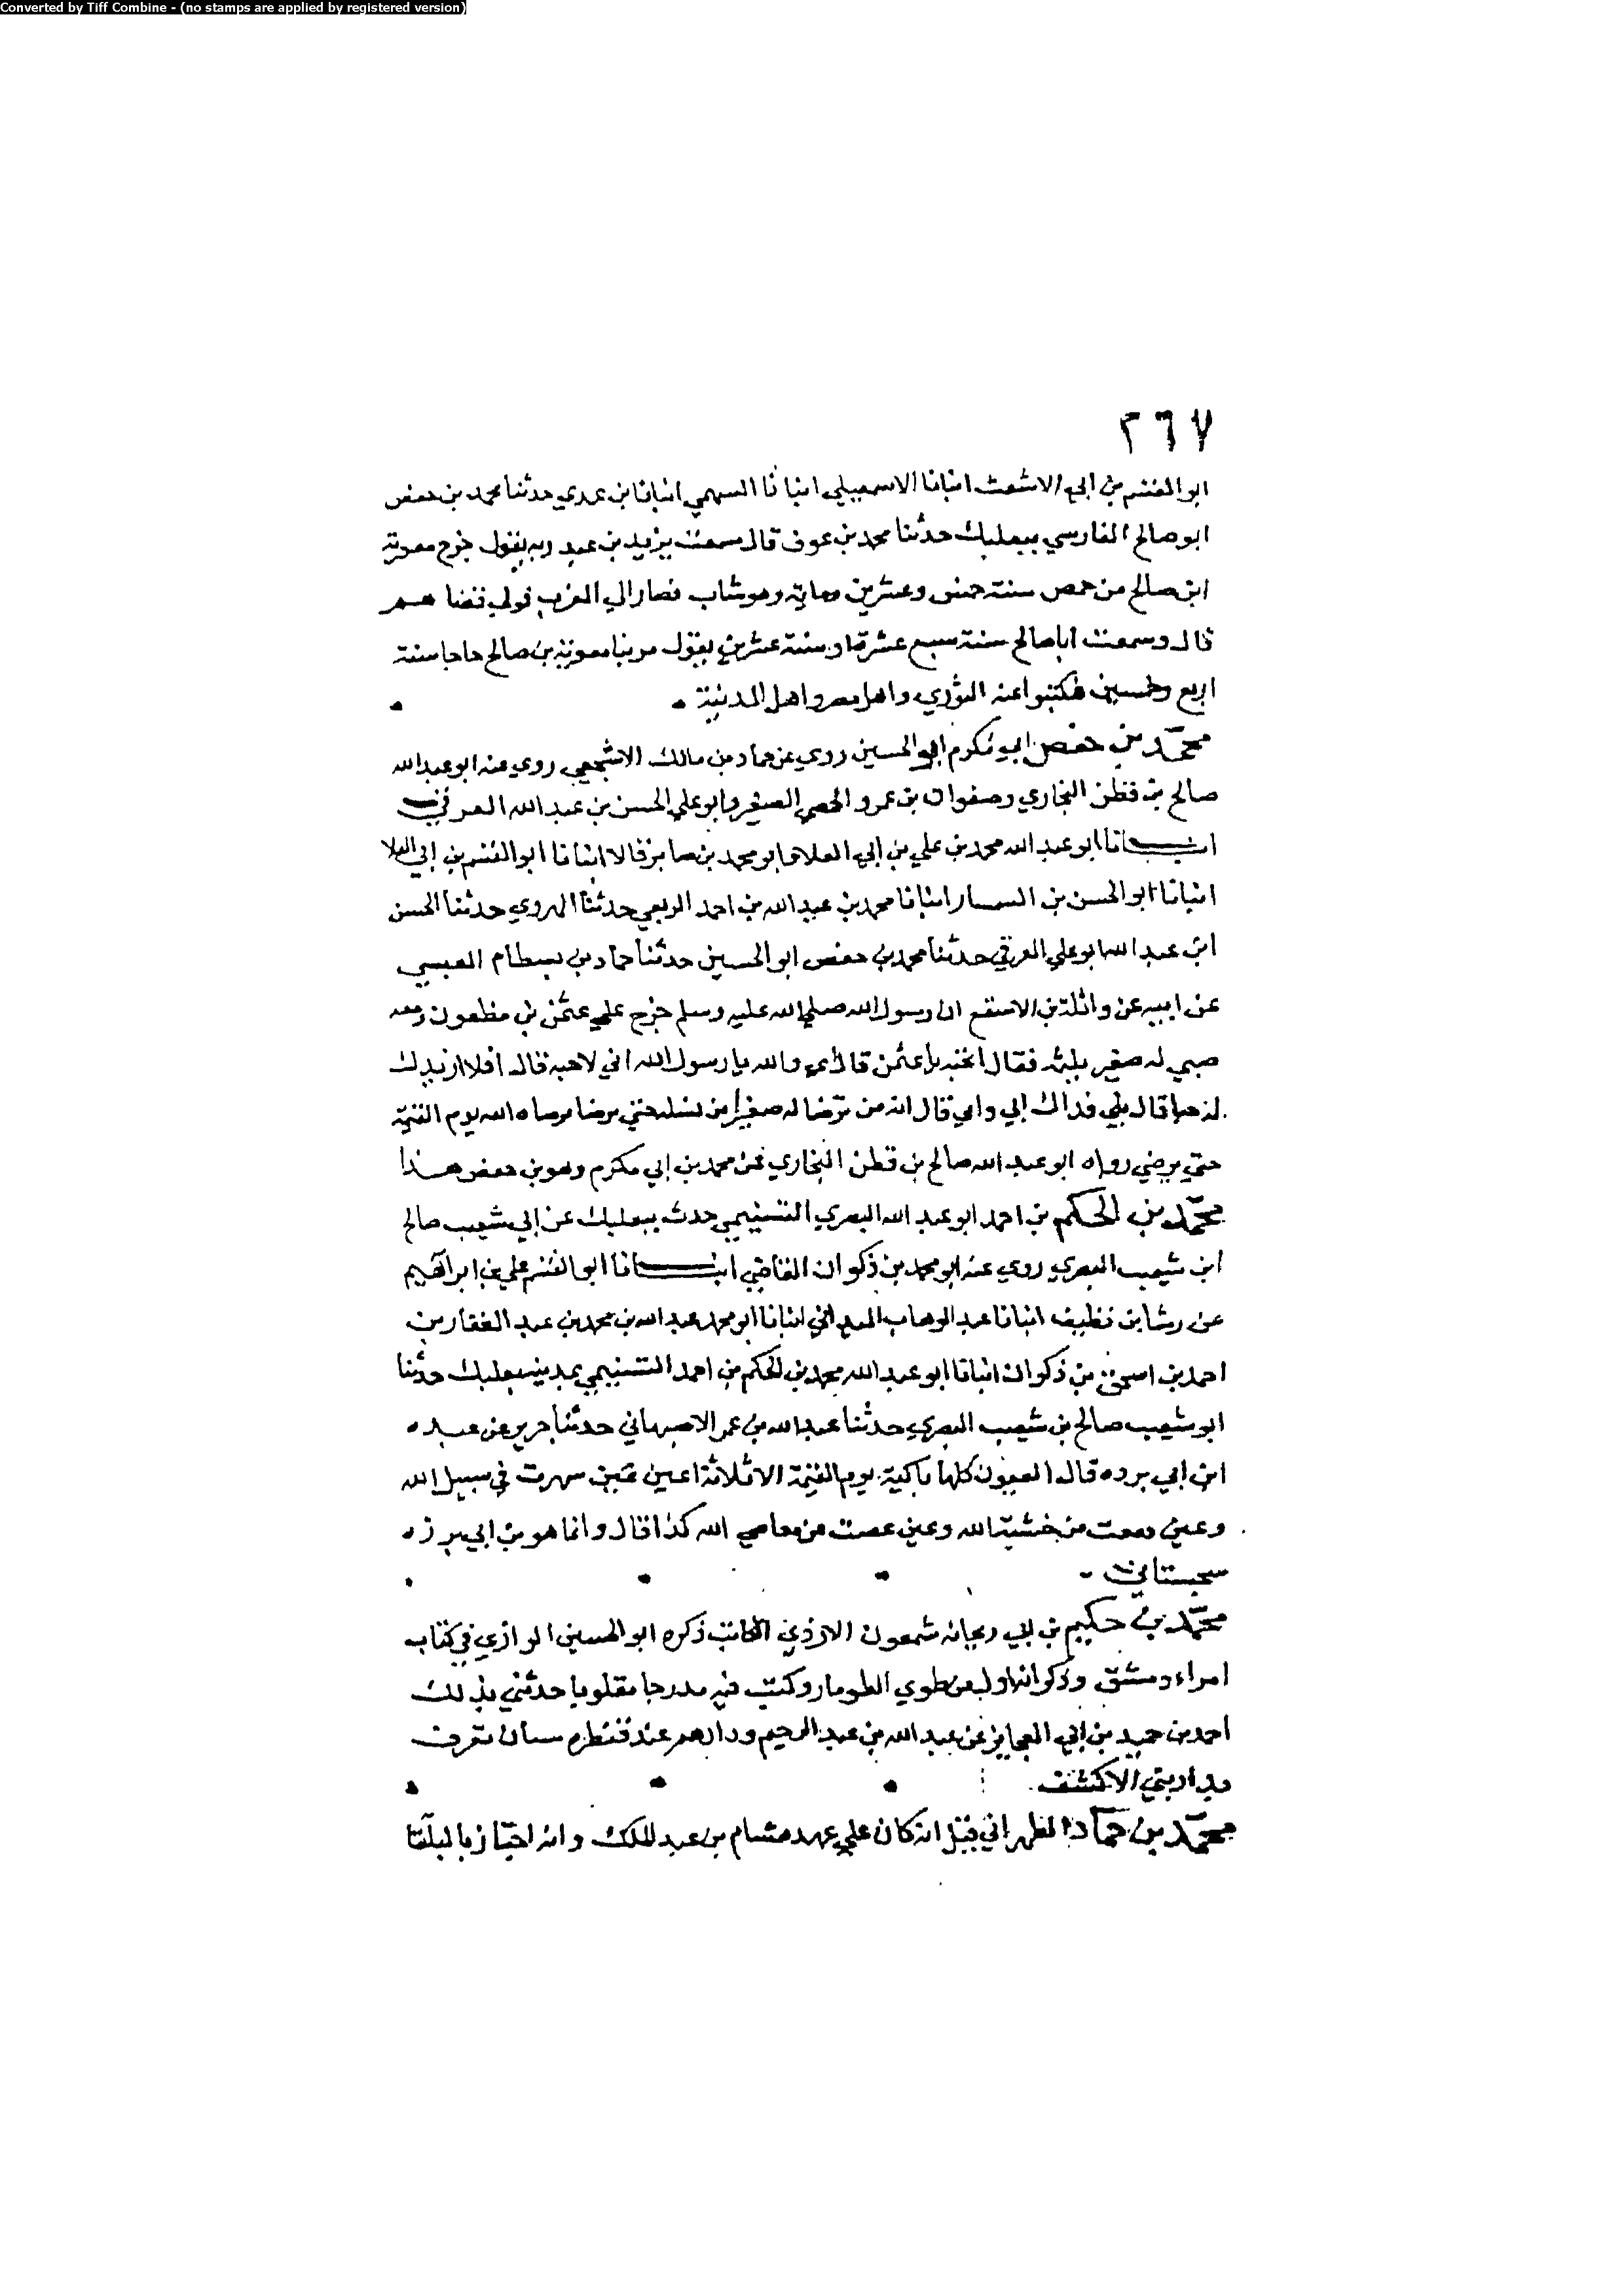 Converted by Tiff Combine - (no stamps are applied by registered version)
٢٦٧
ابو القسم بن ابي الاشعث انبانا الاسمعيلي انبانا السهمي انبانا بن عدي حدثنا محمد بن حفص
ابو صالح الفارسي ببعلبك حدثنا محمد بن عوف قال سمعت يزيد بن عبد ربه يقول خرج معوية
ابن صالح من حمص سنة خمس وعشرين وماية وهو شاب فصار الي المغرب فولي قضاهم
قال وسمعت ابا صالح سنة سبع عشرة او سنة عشرين يقول مر بنا معوية بن صالح حاجا سنة
اربع وخمسين فكتبوا عنه الثوري واهل مصر واهل المدينة
محمد بن حفص ابي مكرم ابو الحسين روي عن حماد بن مالك الاشجعي روي عنه ابو عبد الله
صالح بن قطن البخاري وصفوان بن عمرو الحمصي الصغير وابو علي الحسن بن عبد الله العرقي
انبانا ابو عبد الله محمد بن علي بن ابي العلا وابو محمد بن صابر قالا انبانا ابو القسم بن ابي العلا
انبانا ابو الحسن بن السمسار انبانا محمد بن عبد الله بن احمد الربعي حدثنا الهروي حدثنا الحسن
ابن عبد الله ابو علي العرقي حدثنا محمد بن حفص ابو الحسين حدثنا حماد بن بسطام العبسي
عن ابيه عن واثلة بن الاسقع ان رسول الله صلي الله عليه وسلم خرج علي عثمن بن مظعون ومعه
صبي له صغير يلثمه فقال اتحبه يا عثمن قال اي والله يا رسول الله اني لاحبه قال افلا ازيدك
له حبا قال بلي فداك ابي وامي قال انه من ترضا له صغيرا من نسله حتي يرضا ترضاه الله يوم القيمة
حتي يرضي رواه ابو عبد الله صالح بن قطن البخاري عن محمد بن ابي مكرم وهو بن حفص هذا
محمد بن الحكم بن احمد ابو عبد الله البصري التسنيمي حدث ببعلبك عن ابي شعيب صالح
ابن شعيب البصري روي عنه ابو محمد بن ذكوان القاضي انبانا ابو القسم علي بن ابراهيم
عن رشا بن نظيف انبانا عبد الوهاب الميداني انبانا ابو محمد عبد الله بن محمد بن عبد الغفار بن
احمد بن اسحق بن ذكوان انبانا ابو عبد الله محمد بن الحكم بن احمد التسنيمي بمدينة بعلبك حدثنا
ابو شعيب صالح بن شعيب البصري حدثنا عبد الله بن عمر الاصبهاني حدثنا جرير عن عبده
ابن ابي برده قال العيون كلها باكية يوم القيمة الا ثلاثة اعين عين سهرت في سبيل الله
وعين دمعت من خشية الله وعين عصت من معاصي الله كذا قال وانما هو بن ابي برزه
سجستاني
محمد بن حكيم بن ابي ريحانه شمعون الازدي الكاتب ذكره ابو الحسين الرازي في كتاب
امراء دمشق وذكر انه اول من طوي الطومار وكتب فيه مدرجا مقلوبا حدثني بذلك
احمد بن حميد بن ابي العجايز عن عبد الله بن عبد الرحيم ودارهم عند قنطره سنان تعرف
بدار بني الاكشف
محمد بن حماد الطهراني قيل انه كان علي عهد هشام بن عبد الملك وانه اجتاز بالبلقا